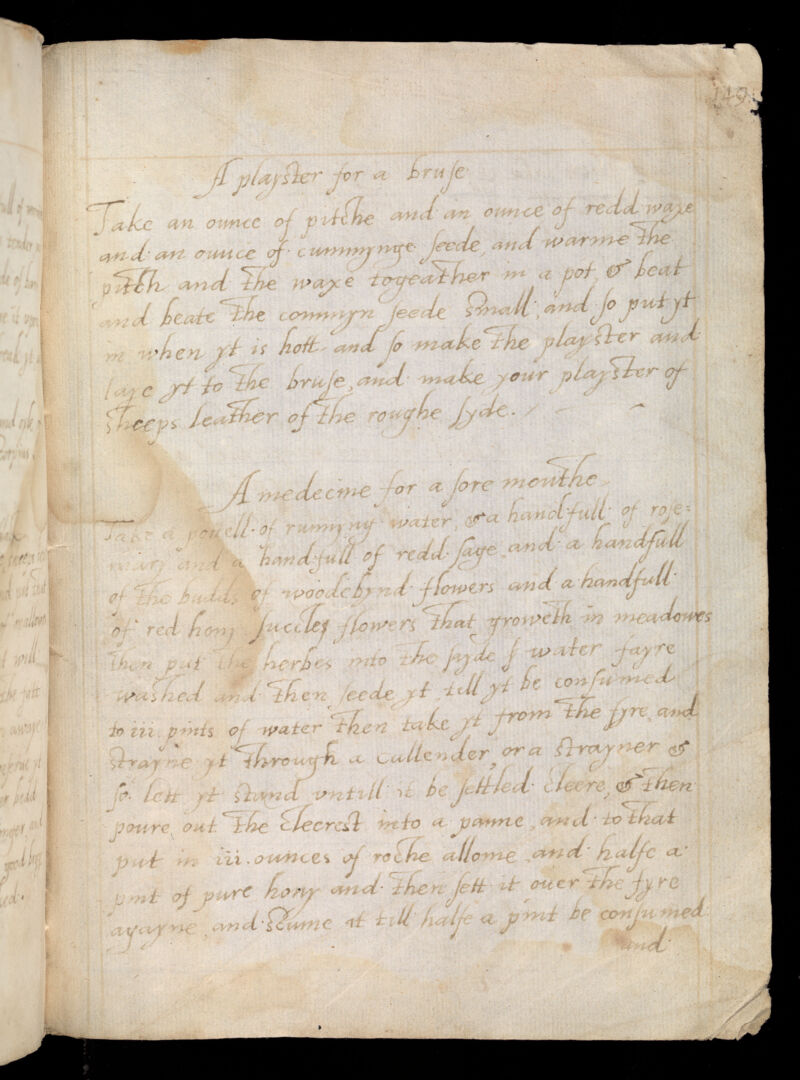 149
A playster for a bruse
Take an ounce of pitche and an ounce of redd waxe
and an ounce of cummynge seede, and warme the
pitch and the waxe togeather in a pot, & beat
and beate the commyn seede small, and so put yt
in when yt is hott and so make the playster and
laye yt to the bruse, and make your playster of
sheeps leather of the roughe syde.
A medecine for a sore mouthe
Take a of running water, & a handfull of rose=
mary and a handfull of redd sage and a handfull
of the budds of woodebynd flowers and a handfull
of red hony succles flowers that groweth in meadowes
then put the herbes into the water fayre
washed and then seede yt till yt be consumed
to iii pints of water then take yt from the fyre, and
strayne yt through a cullender, or a strayner &
so lett yt stand untill it be settled cleere, & then
poure out the cleerest into a panne, and to that
put in iii. ounces of roche allome and halfe a
pint of pure hony and then sett it over the fyre
agayne, and scume it till halfe a pint be consumed
and